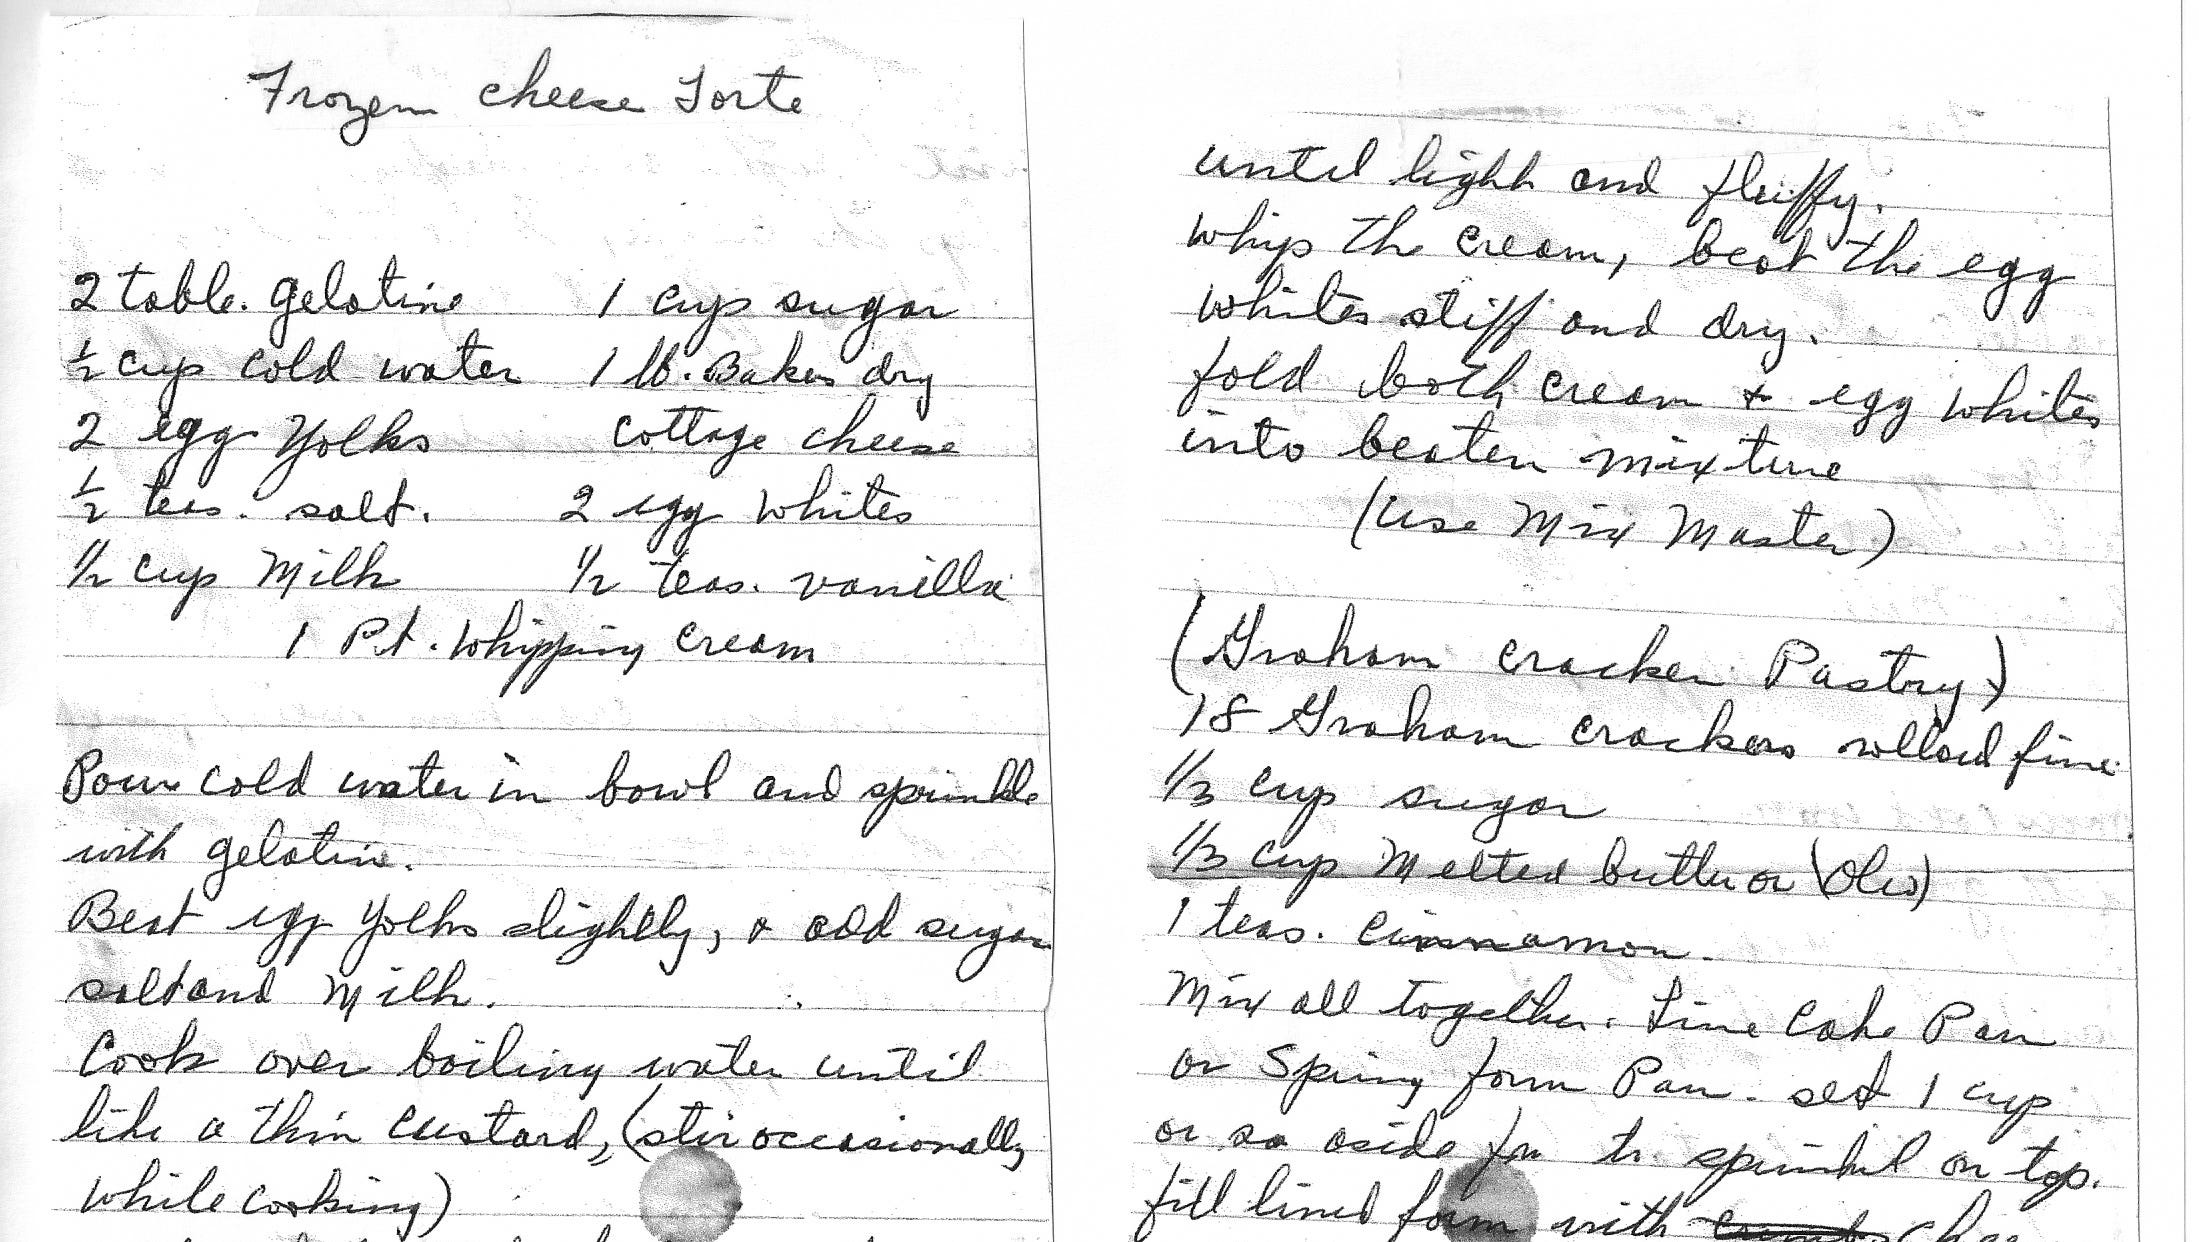 Frozen cheese Torte
2 table. gelatine 1 cup sugar
1/2 cup cold water 1 lb. Bakers dry
2 egg Yolks cottage cheese
1/2 teas. salt. 2 egg whites
1/2 cup Milk 1/2 teas. vanilla
1 Pt. Whipping cream
Pour cold water in bowl and sprinkle
with gelatine.
Beat egg Yolks slightly, & add sugar
salt and Milk.
Cook over boiling water until
like a thin custard, (stir occasionally
while cooking)
until light and fluffy.
whip the cream, beat the egg
whites stiff and dry.
fold both cream & egg whites
into beaten mixture
(use Mix Master)
(Graham cracker Pastry)
18 Graham crackers rolled fine
1/3 cup sugar
1/3 cup Melted butter or (Oleo)
1 teas. Cinnamon.
Mix all together. Line Cake Pan
or Spring form Pan. set 1 cup
or so aside for to sprinkel on top.
fill lined form with